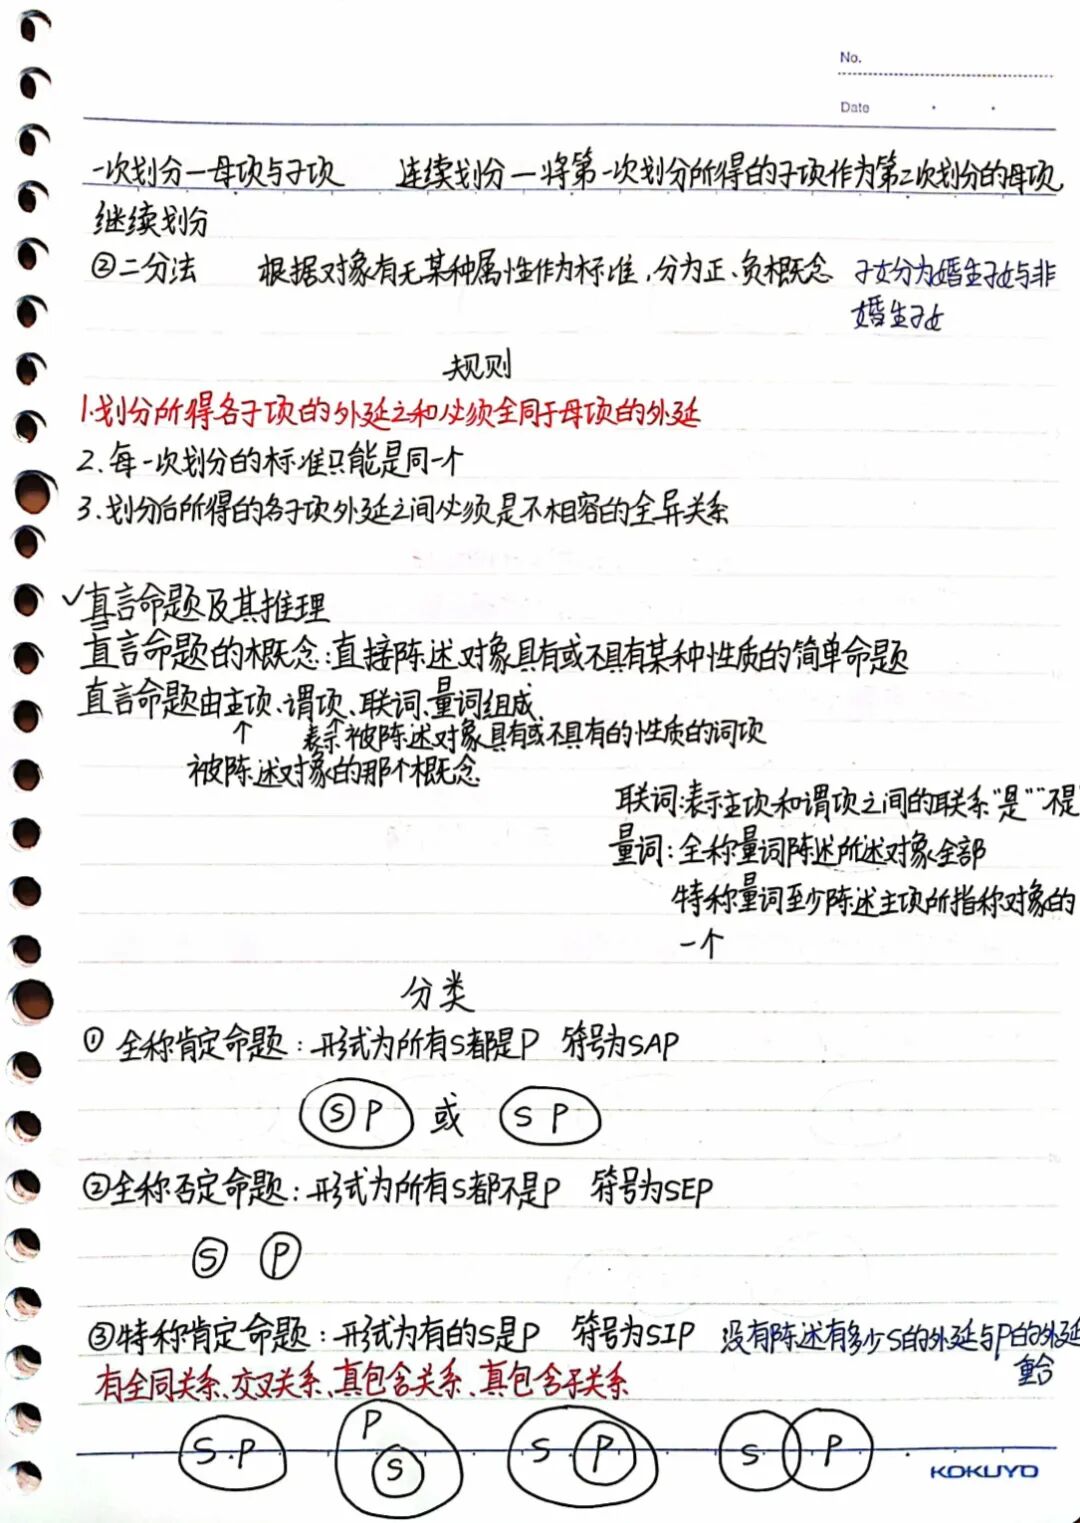 No.
Date
一次划分—母项与子项 连续划分—将第一次划分所得的子项作为第二次划分的母项,
继续划分
②二分法 根据对象有无某种属性作为标准,分为正、负概念 子女分为婚生子女与非
婚生子女
规则
1.划分所得各子项的外延之和必须全同于母项的外延
2.每一次划分的标准只能是同一个
3.划分后所得的各子项外延之间必须是不相容的全异关系
✓直言命题及其推理
直言命题的概念:直接陈述对象具有或不具有某种性质的简单命题
直言命题由主项、谓项、联词、量词组成
↑ ↑
表示被陈述对象具有或不具有的性质的词项
被陈述对象的那个概念
联词:表示主项和谓项之间的联系"是""不是
量词:全称量词陈述所述对象全部
特称量词至少陈述主项所指称对象的
一个
分类
① 全称肯定命题:形式为所有S都是P 符号为SAP
S P 或 S P
②全称否定命题:形式为所有S都不是P 符号为SEP
S P
③特称肯定命题:形式为有的S是P 符号为SIP 没有陈述有多少S的外延与P的外延
重合
有全同关系、交叉关系、真包含关系、真包含于关系
S·P P S S P S P
KOKUYO